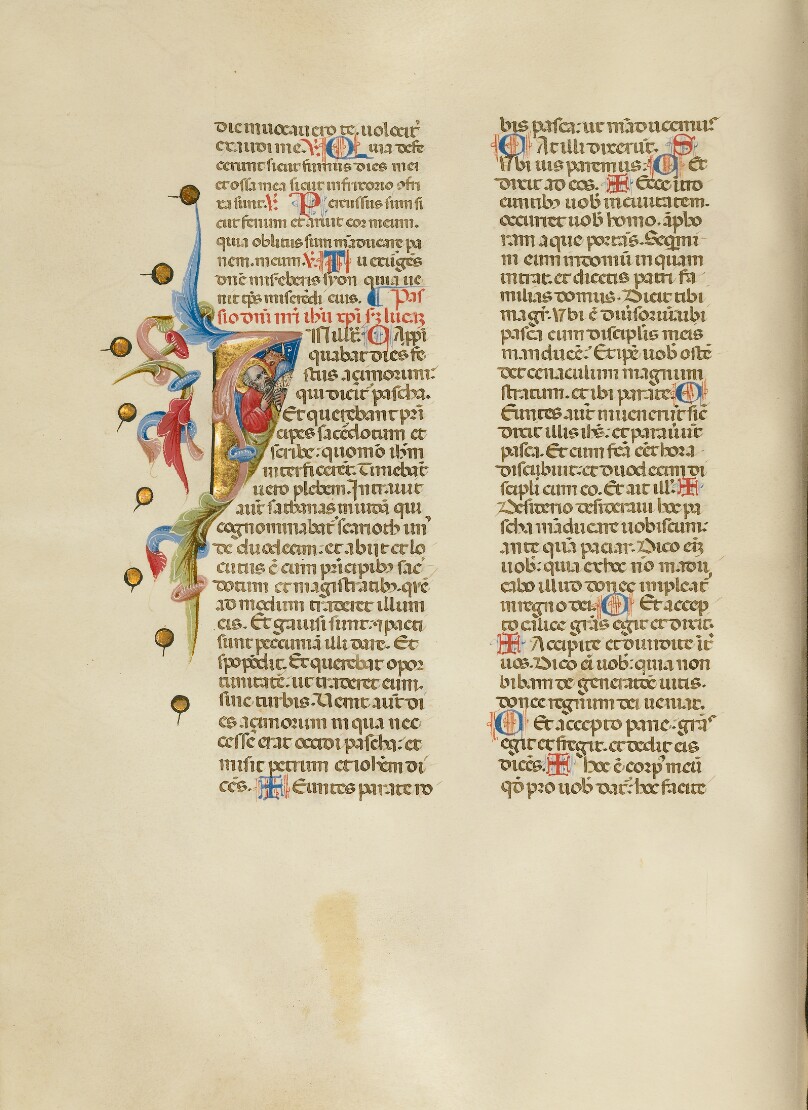 die inuocauero te. uelociť
exaudi me. V. Quia defe
cerunt sicut fumus dies mei
et ossa mea sicut in frixorio
ta sunt. V. Percussus sum si
cut fenum et aruit cor meum.
quia oblitus sum māducare pa
nem meum. V. Tu exurgēs
dn̄e misereberis syon quia ue
nit tp̄s miserēdi eius. Pas
sio dn̄i nr̄i ih̄u xp̄i lucaʒ
IN illꝛ. Appī
quabat dies fe
stus açimorum
qui dicit̄ pascha.
Et querebant prī
cipes sacēdotum et
scribe: quomō ih̄m
interficerēt. Timebāt
uero plebem. Intrauit
aūt sathanas in iudā qui
cognominabat̄ scarioth un'
de duodecim: et abijt et lo
cutus ē cum prīcipibꝫ sac̄
dotum et magistratibꝫ. qr̄e
ad modum traderet illum
eis. Et gauisi sunt: ⁊ pacti
sunt peccuniā illi dare. Et
spopōdit. Et querebat opor
tunitatē. ut traderet eum.
sine turbis. Uenit aūt di
es açimorum in qua nec
cessē erat occidi pascha: et
misit petrum et ioħem di
cēs. Euntes parate no
bis pasca: ut māducemus
C At illi dixerūt. S
Ubi uis paremus. C Et
dixit ad eos. Ecce ītro
euntibꝫ uob̄ in ciuitatem.
occuriet uob̄ homo. āpho
ram aque portās. Seqmi
ni eum in domū in quam
intrat. et dicetis patri fa
milias domus. Dicit tibi
magr̄. Ubi ē diuisoriū. ubi
pasca cum disciplis meis
manducē: Et ip̄e uob̄ ostē
det cenaculum magnum
stratum. et ibi parate. C
Euntes aūt inuenerūt sic̄
dixit illis ih̄s: et parauūt
pasca. Et cum fc̄ā cēt hora
discubuit: et duodecim di
scipli cum eo. Et ait ill̄.
Desiderio desideraui hoc pa
scha māducare uobiscum:
ante quā paciar. Dico eīʒ
uob̄: quia ex hoc nō mādu
cabo illud donec impleat̄
in regno dei. C Et accep
to calice grās egit et dixit.
Accipite et diuidite īt̄
uos. Dico eī uob̄: quia non
bibam de generatōe uitis.
donec regnum dei ueniat.
C Et accepto pane. grās
egit et fregit. et dedit eis
dicēs. hoc ē corpꝰ meū
qd̄ pro uob̄ dat̄: hoc facite